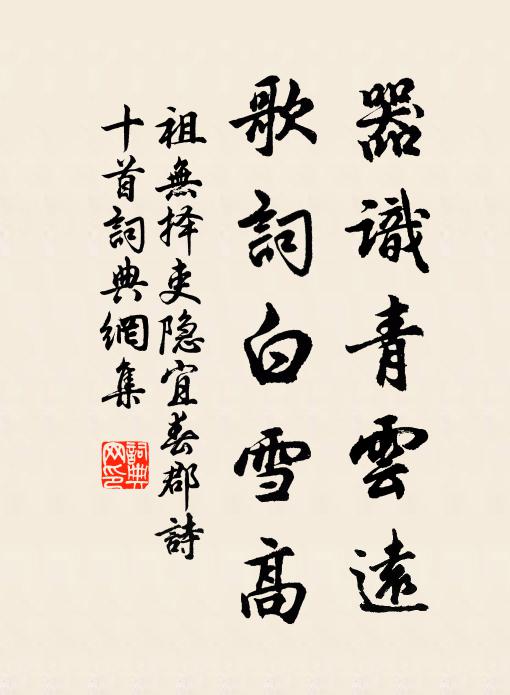 器識青雲遠
歌詞白雪高
祖無择吏隐宜春郡詩
十首詞典網集
詞典
网印